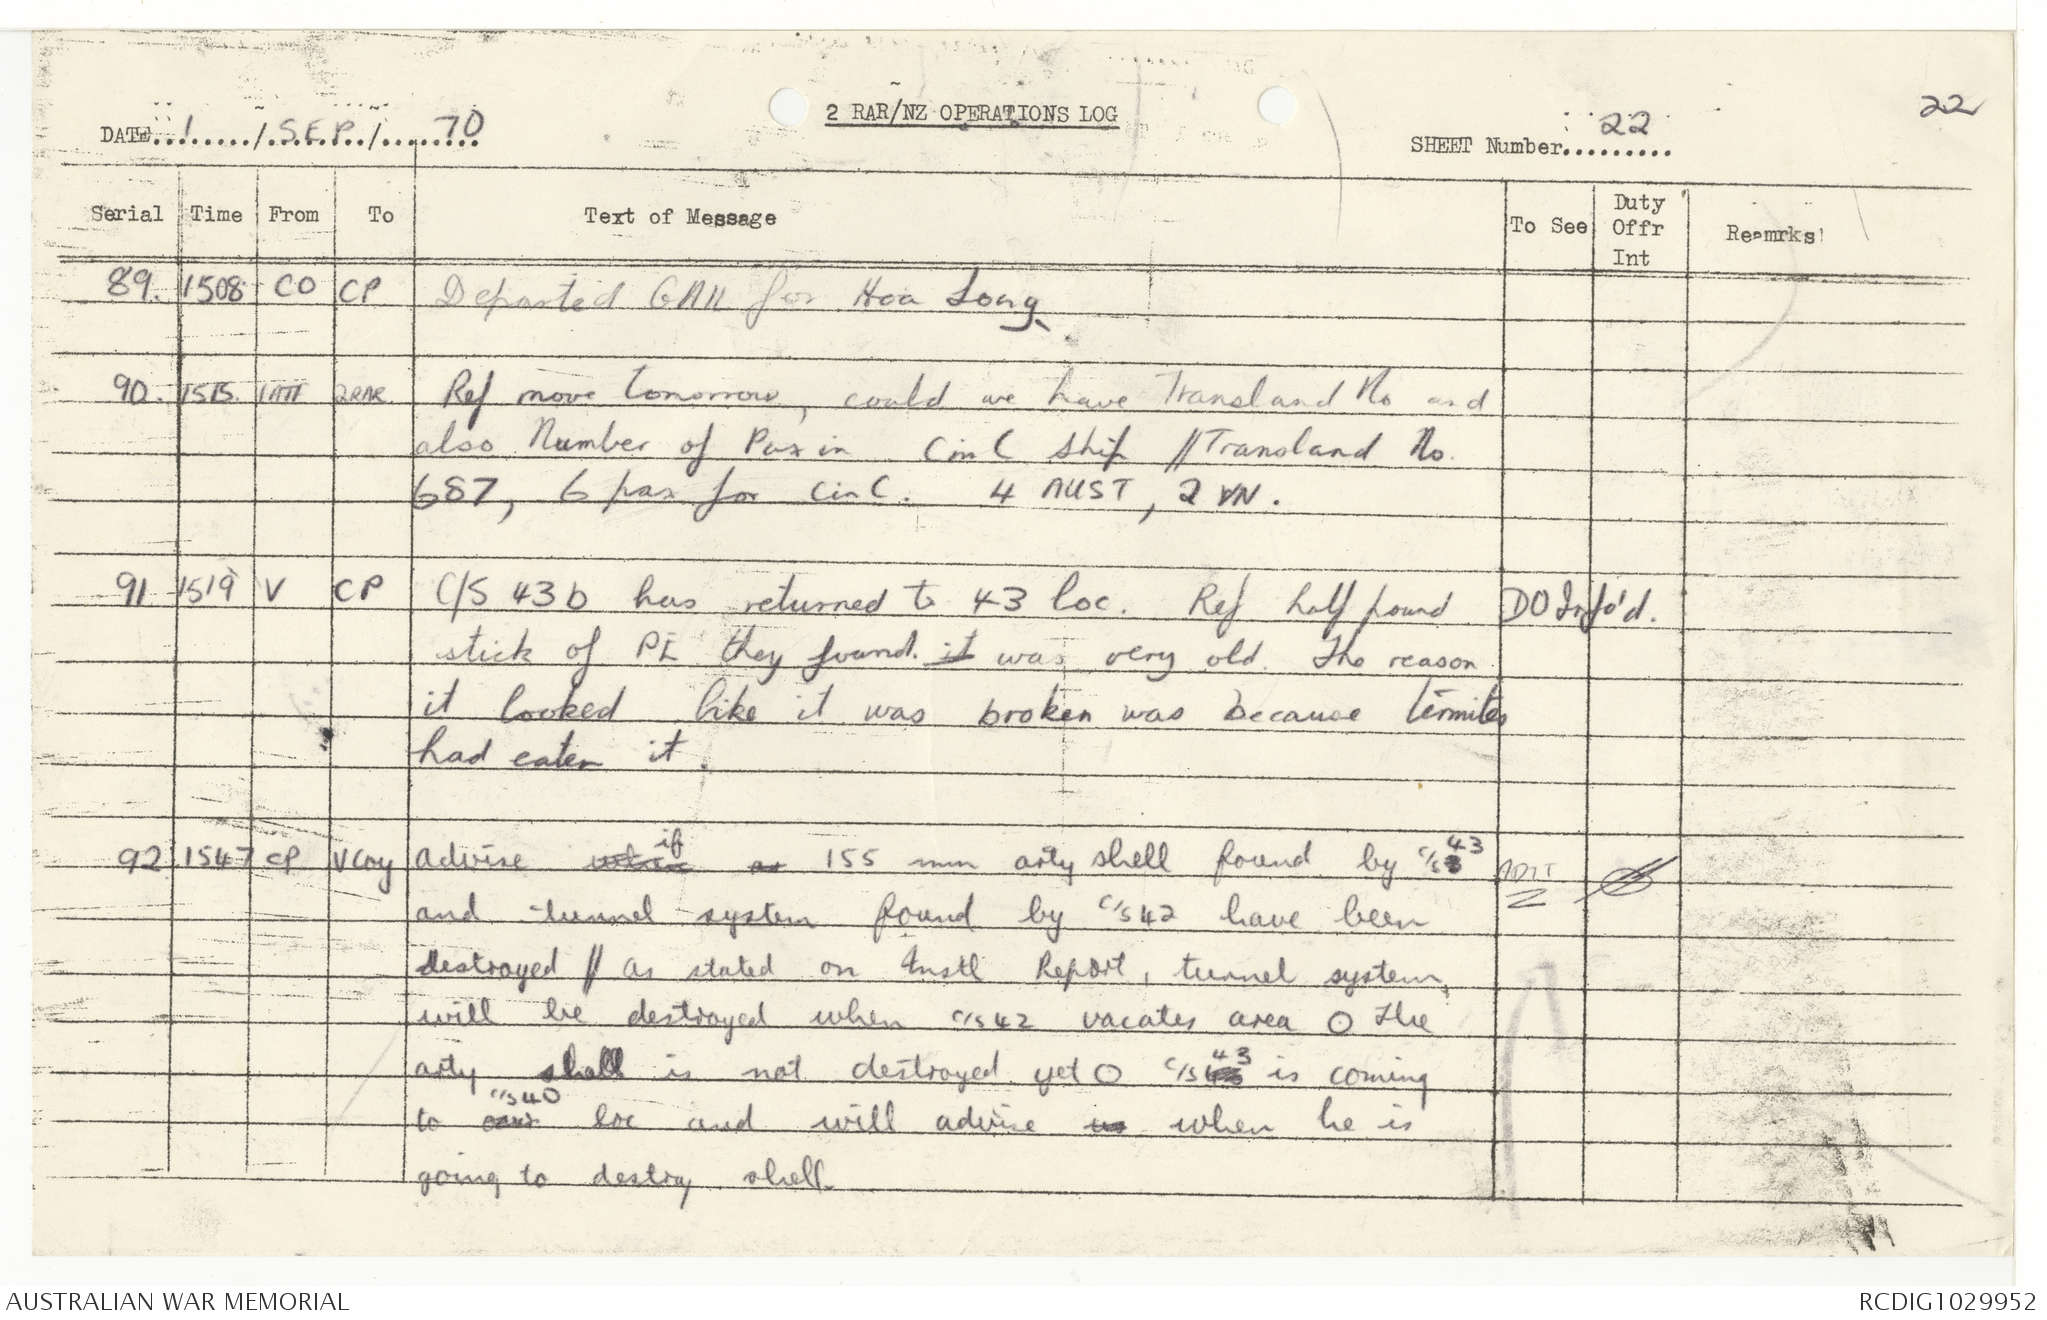 22
2 RAR/NZ OPERATIONS LOG
DATE 1 / SEP / 70
SHEET Number 22
Serial Time From To Text of Message To See Duty Offr Int Reamrks
89. 1508 CO CP Departed GAH for Hoa Long
90. 1515 1ATF 2RAR Ref move tomorrow, could we have Transland No and
also Number of Pax in CinC ship // Transland No.
687, 6 pax for CinC. 4 AUST, 2 VN.
91 1519 V CP C/S 43b has returned to 43 loc. Ref half pound DO Info'd.
stick of PE they found. it was very old. The reason
it looked like it was broken was because termites
had eaten it.
92 1547 CP V Coy advise if 155 mm arty shell found by C/S 43
and tunnel system found by C/S 42 have been
destroyed // as stated on Instl Report, tunnel system,
will be destroyed when C/S 42 vacates area O The
arty shell is not destroyed yet O C/S 43 is coming
to C/S 40 loc and will advise us when he is
going to destry shell.
AUSTRALIAN WAR MEMORIAL
RCDIG1029952